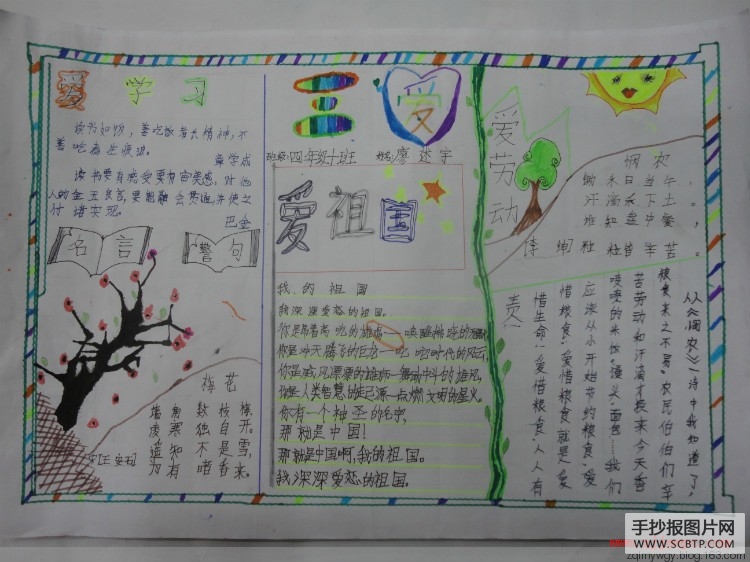 爱 学 习
读书如吃饭，善吃饭者长精神，不
善吃者生疾病。
章学成
读书要有感受要有审美感，对他
人的金玉良言，要能融会贯通，并使之
付诸实现。
巴金
名言 警句
梅花
[王安石]
墙角数枝梅，
凌寒独自开。
遥知不是雪，
为有暗香来。
三 爱
班级：四年级十班 姓名：廖述宇
爱祖国
我的祖国
我深深爱恋的祖国。
你是昂着高吭的雄鸡——唤醒
你是冲天腾飞的巨龙——叱咤时代的风云，
你是威风凛凛的雄狮—舞动中华的雄风，
你是人类智慧的起源—点燃文明的星火。
你有一个神圣的名字，
那就是中国！
那就是中国啊，我的祖国。
我深深爱恋的祖国。
爱劳动
悯农
李绅
锄禾日当午，
汗滴禾下土。
谁知盘中餐，
粒粒皆辛苦。
从《悯农》一诗中我知道了，
粮食来之不易。农民伯伯们辛
苦劳动和汗滴才换来今天香
喷喷的米饭、馒头、面包……我们
应该从小开始节约粮食，爱
惜粮食。爱惜粮食就是爱
惜生命！爱惜粮食，人人有
责
手抄报图片网
WWW.SCBTP.COM
zqlmywgy.blog.163.com